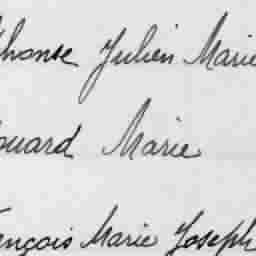 phonse Julien Marie
ouard Marie
ançois Marie Joseph